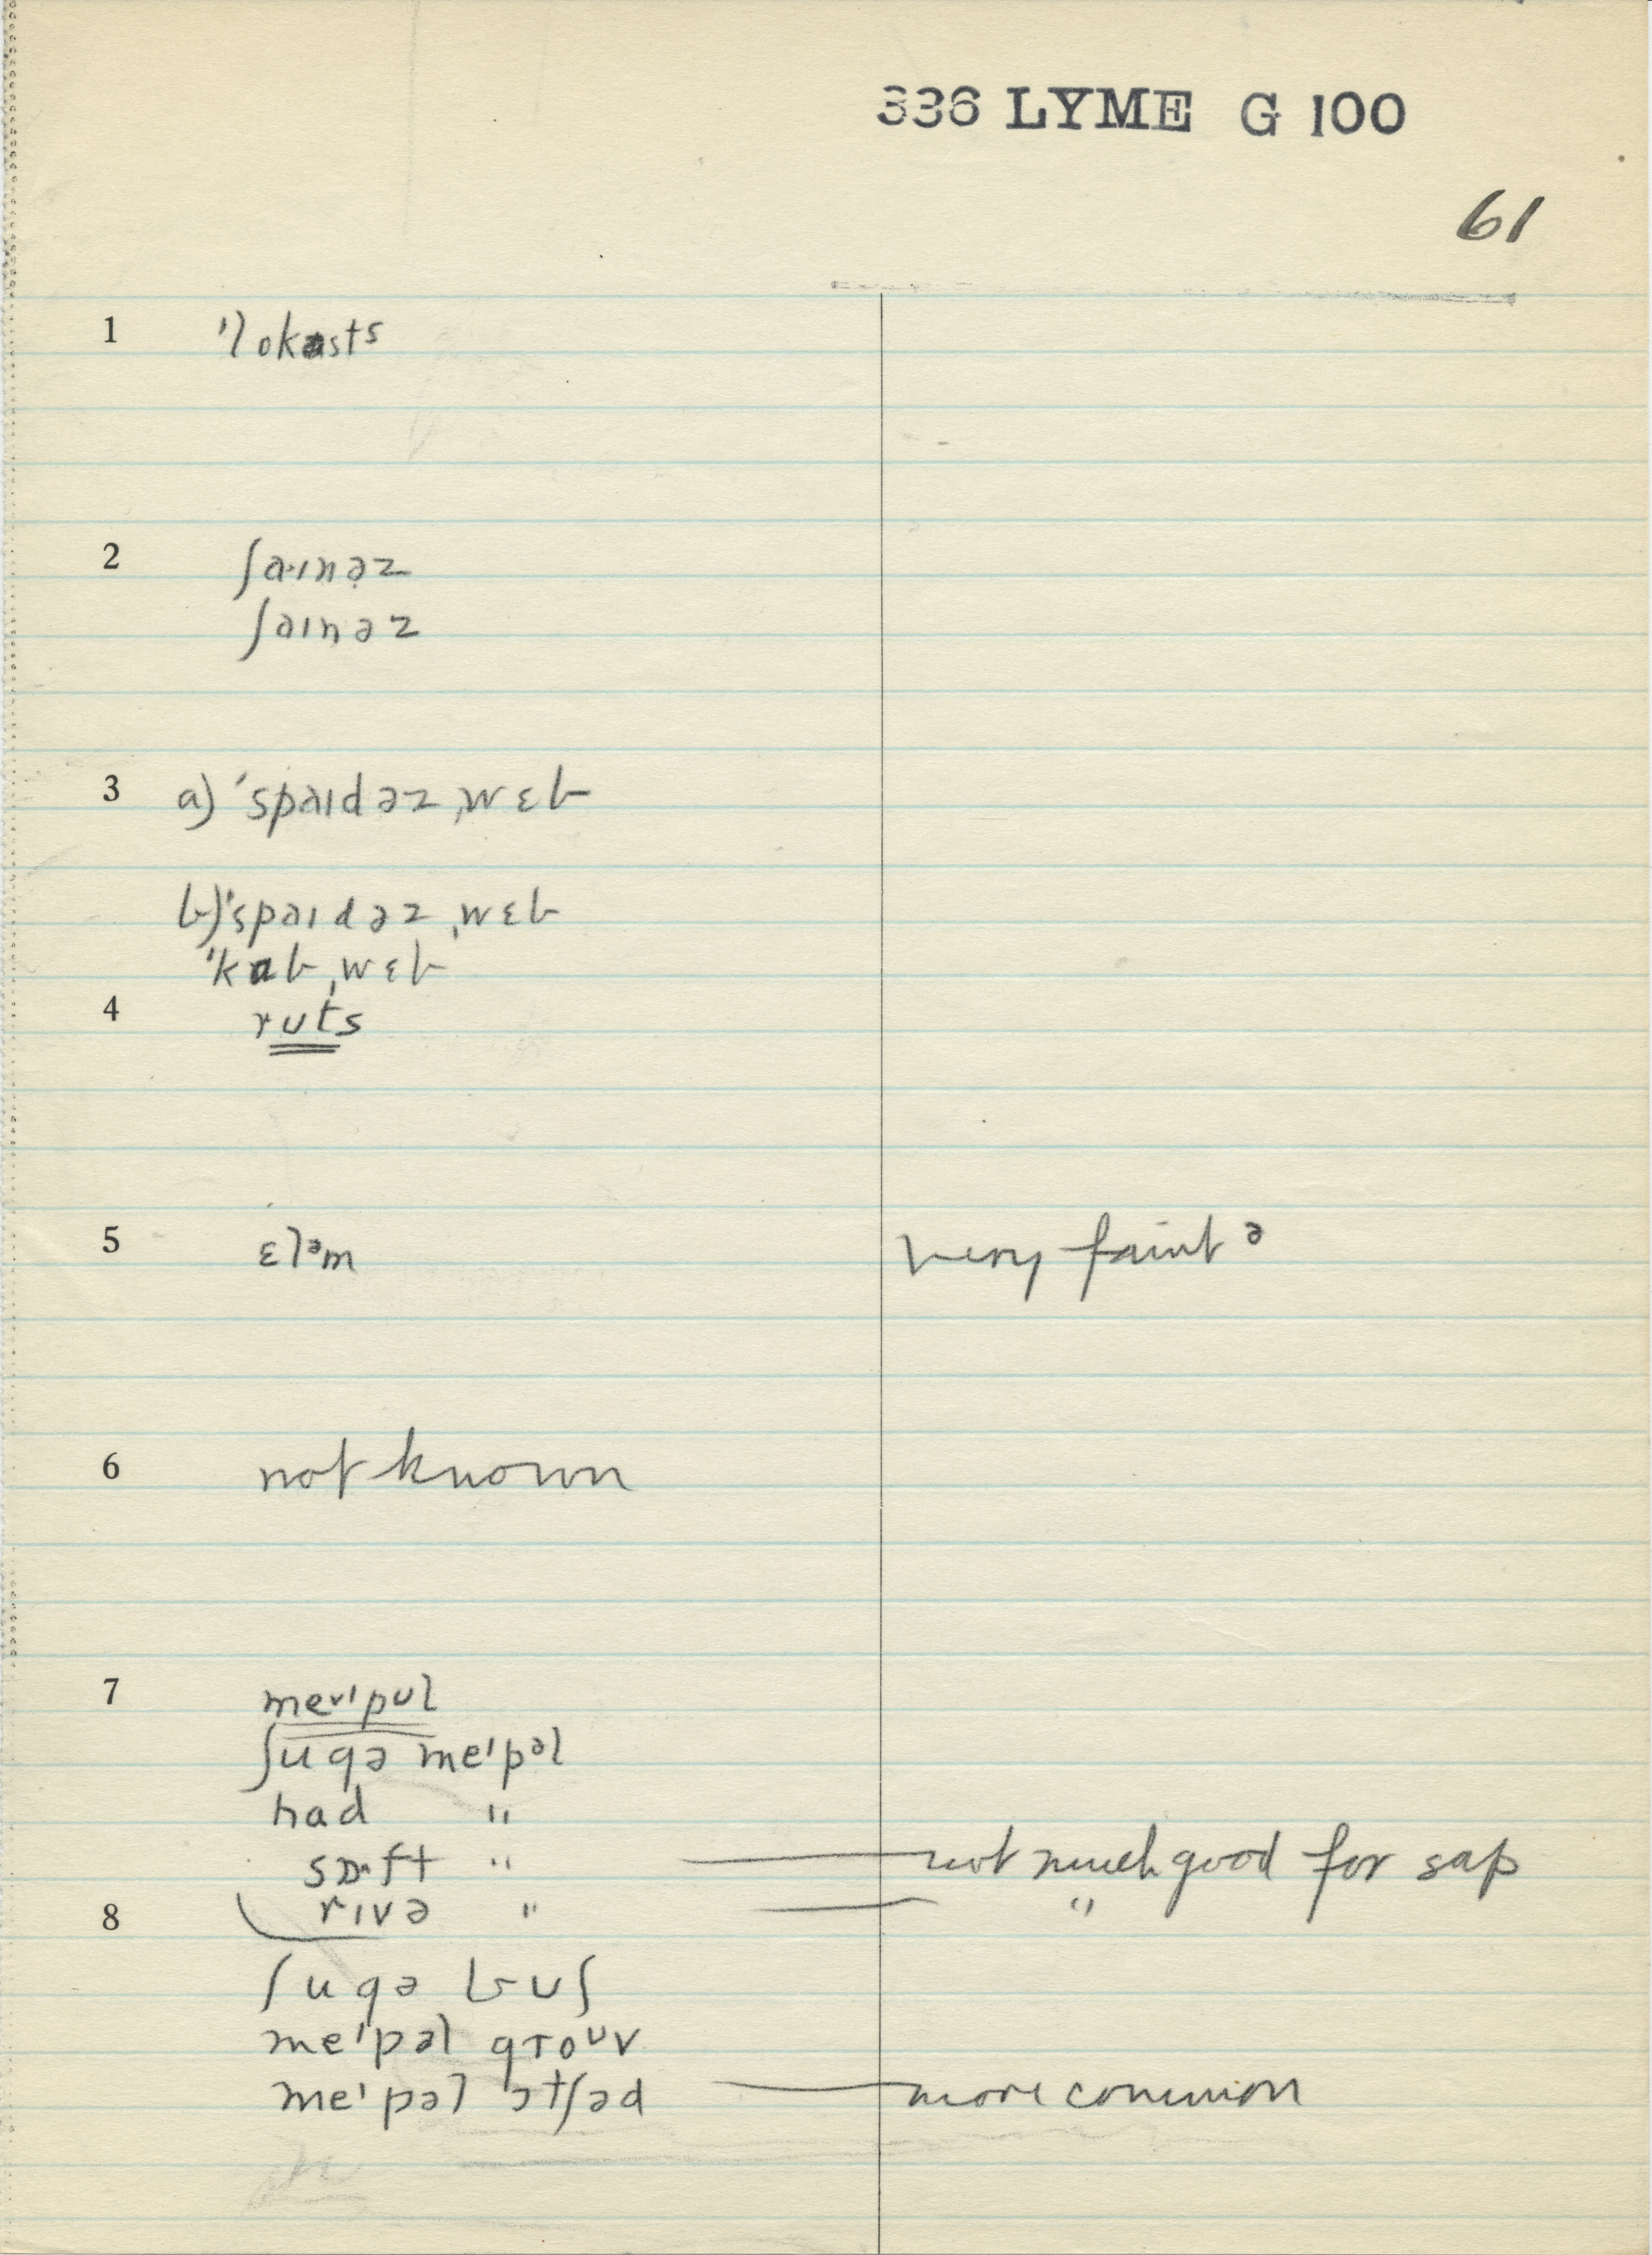 336 LYME G 100
61
1 ˈlokəsts
2 ʃaˑɪnəz
ʃaɪnəz
3 a) ˈspaɪdəz ˌwɛb
b) ˈspaɪdəz ˌwɛb
ˈkɒb ˌwɛb
4 ruts
5 ɛlᵊm very faint ə
6 not known
7 meᵛˈpʊl
ʃʊgə meˈpᵊl
had "
sɒˑft " — not much good for sap
8 rɪvə " — "
ʃʊgə bʊʃ
meˈpəl groᶷv
meˈpəl ɔtʃəd — more common